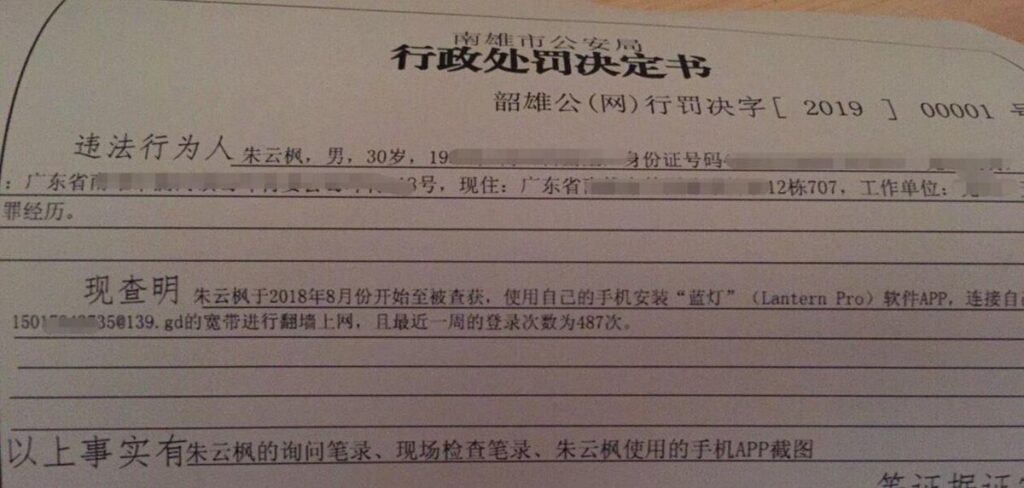 南雄市公安局
行政处罚决定书
韶雄公(网)行罚决字[ 2019 ] 00001 号
违法行为人 朱云枫，男，30岁，19 身份证号码
：广东省南 3号，现住：广东省南 12栋707，工作单位：
罪经历。
现查明 朱云枫于2018年8月份开始至被查获，使用自己的手机安装“蓝灯”（Lantern Pro）软件APP，连接自
1501 35@139.gd的宽带进行翻墙上网，且最近一周的登录次数为487次。
以上事实有朱云枫的询问笔录、现场检查笔录、朱云枫使用的手机APP截图
等证据证